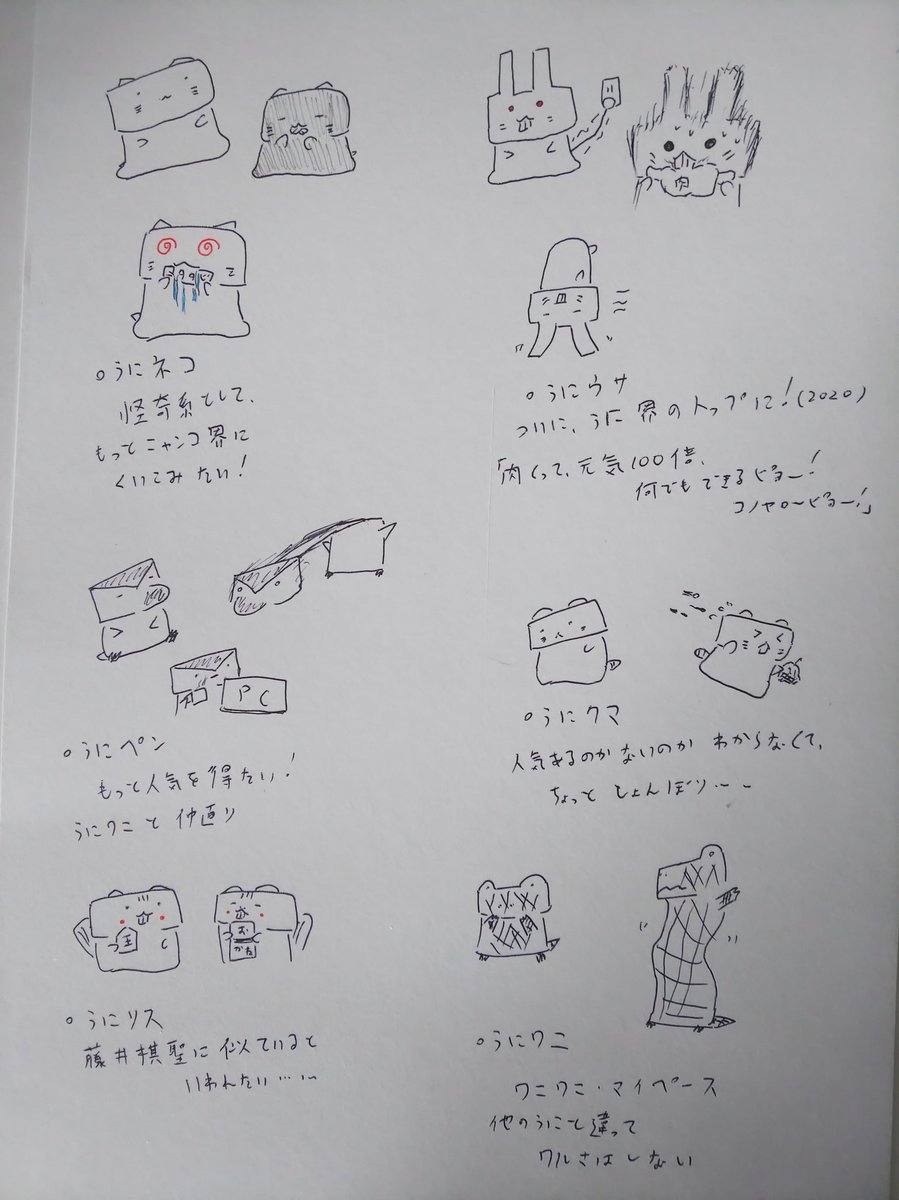 肉
○うにネコ
怪奇系として、
もっとニャンコ界に
くいこみたい!
○うにウサ
ついに、うに界のトップに!(2020)
「肉くって、元気100倍、
何でもできるピョー!
コノヤローピョー!」
PC
○うにペン
もっと人気を得たい!
うにワニと仲直り
○うにクマ
人気あるのかないのかわからなくて、
ちょっとしょんぼり・・・
王
おかた
○うにリス
藤井棋聖に似ていると
いわれたい・・・
○うにワニ
ワニワニ・マイペース
他のうにこと違って
ワルさはしない